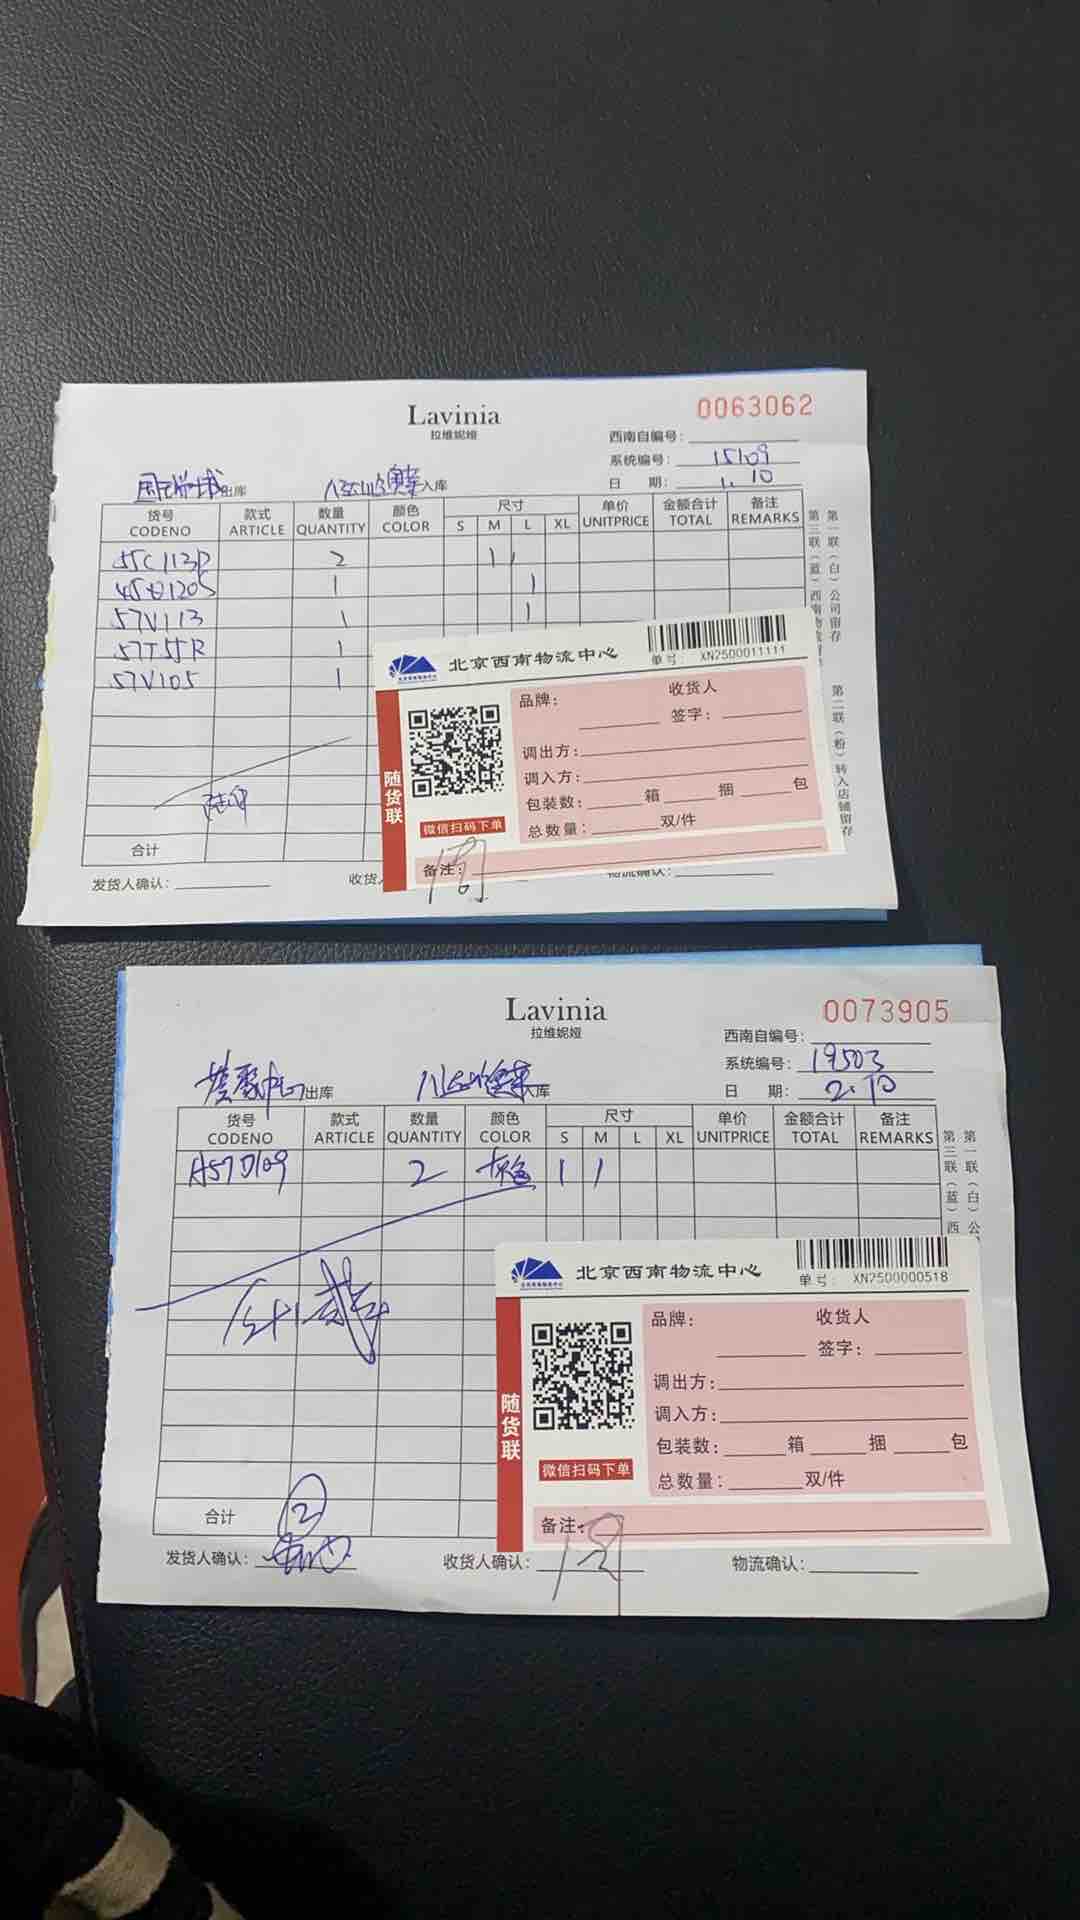 Lavinia
拉维妮娅
0063062
西南自编号:
系统编号: 15109
日 期: 1.10
出库 入库
货号 款式 数量 颜色 尺寸 单价 金额合计 备注
CODENO ARTICLE QUANTITY COLOR S M L XL UNITPRICE TOTAL REMARKS
55C113D 2 1 1
1 1
57V113 1 1
57T55R 1
57V105 1
合计
发货人确认:
收货
物流确认:
第一联(白)公司留存
第二联(粉)转入店铺留存
第三联(蓝)西南物流
北京西南物流中心
单号: XN2500011111
随货联
微信扫码下单
品牌: 收货人
签字:
调出方:
调入方:
包装数: 箱 捆 包
总数量: 双/件
备注:
周
Lavinia
拉维妮娅
0073905
西南自编号:
系统编号: 19503
日 期: 2.10
出库 入库
货号 款式 数量 颜色 尺寸 单价 金额合计 备注
CODENO ARTICLE QUANTITY COLOR S M L XL UNITPRICE TOTAL REMARKS
A57D109 2 灰色 1 1
合计 2
发货人确认:
收货人确认:
物流确认:
第一联(白)公
第三联(蓝)西
北京西南物流中心
单号: XN2500000518
随货联
微信扫码下单
品牌: 收货人
签字:
调出方:
调入方:
包装数: 箱 捆 包
总数量: 双/件
备注: